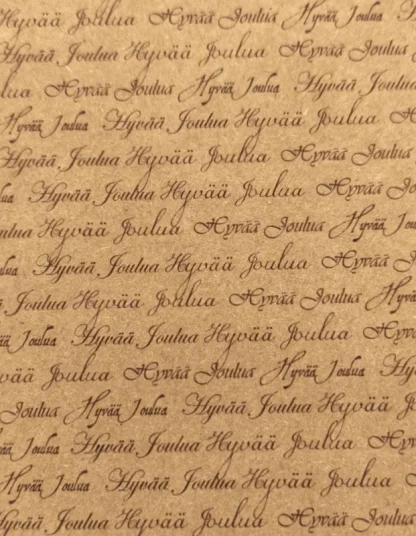 Hyvää Joulua Hyvää Joulua Hyvää Joulua
Hyvää Joulua Hyvää Joulua Hyvää Joulua
Hyvää Joulua Hyvää Joulua Hyvää Joulua
Hyvää Joulua Hyvää Joulua Hyvää Joulua
Hyvää Joulua Hyvää Joulua Hyvää Joulua
Hyvää Joulua Hyvää Joulua Hyvää Joulua
Hyvää Joulua Hyvää Joulua Hyvää
Hyvää Joulua Hyvää Joulua Hyvää
Joulua Hyvää Joulua Hyvää Joulua Hyvää
Joulua Hyvää Joulua Hyvää Joulua Hyvää
Joulua Hyvää Joulua Hyvää Joulua Hyvää
Joulua Hyvää Joulua Hyvää Joulua Hyvää
Joulua Hyvää Joulua Hyvää Joulua
Hyvää Joulua Hyvää Joulua Hyvää Joulua
Hyvää Joulua Hyvää Joulua Hyvää Joulua